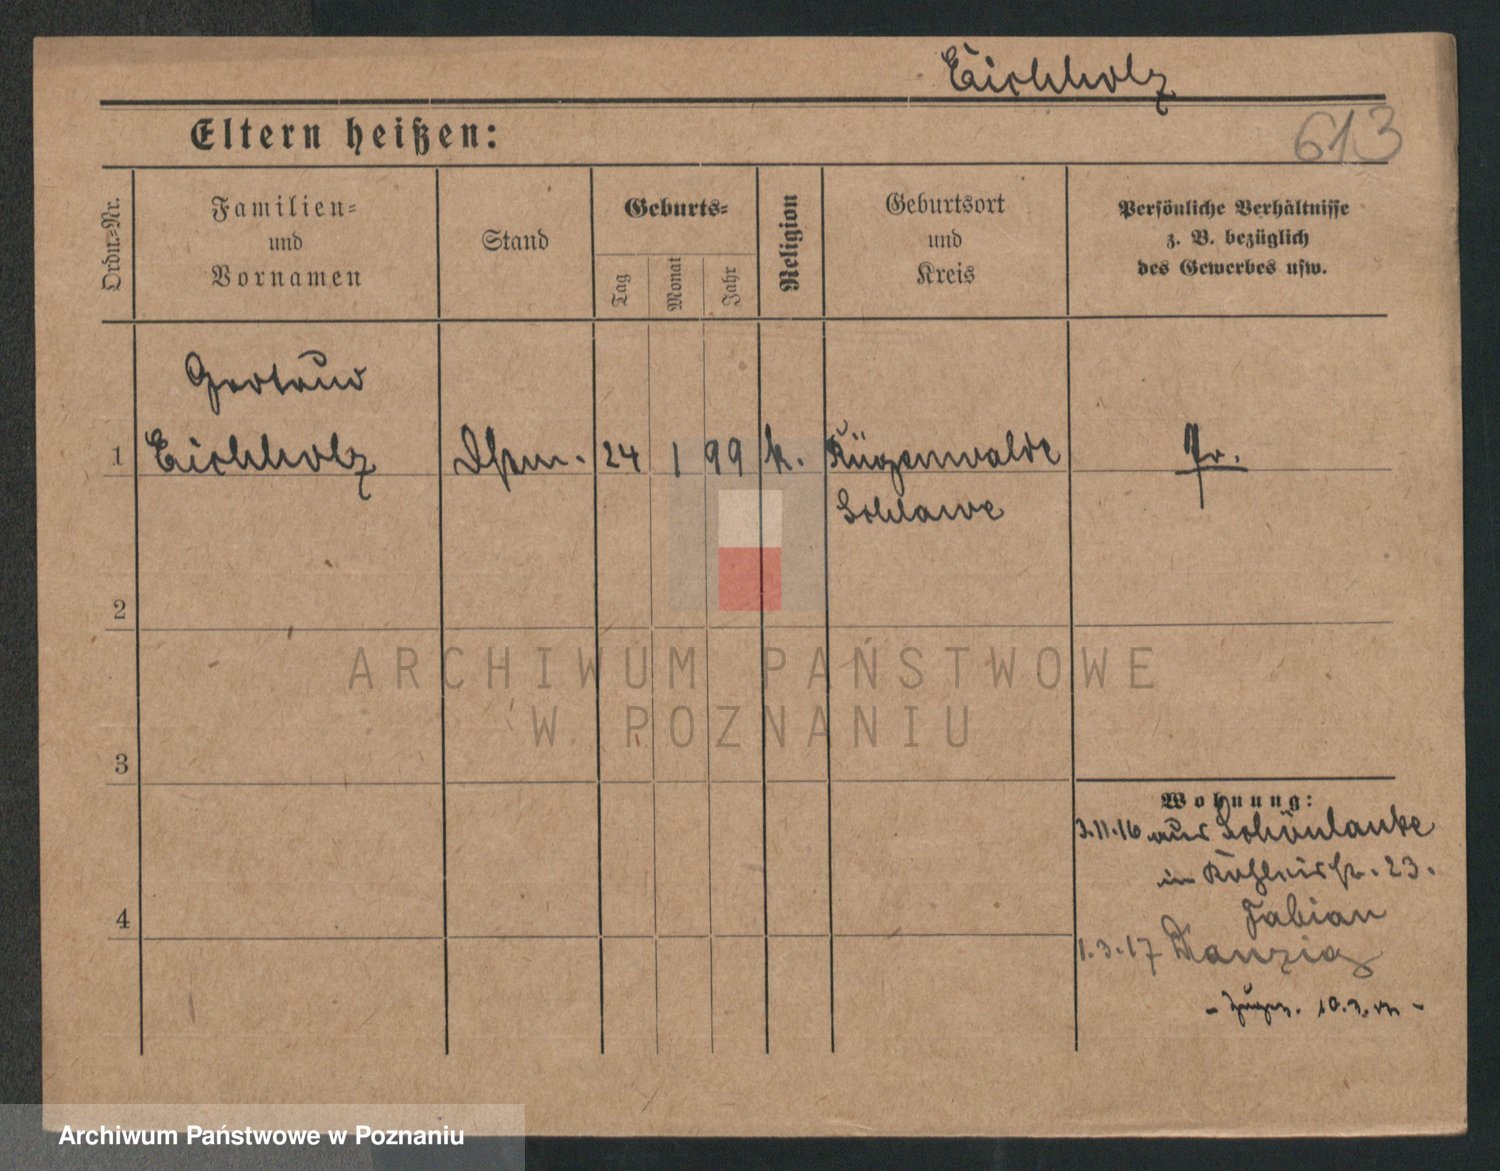 Eichholz
Eltern heißen:
613
Ordn.-Nr.
Familien-
und
Vornamen
Stand
Geburts-
Tag
Monat
Jahr
Religion
Geburtsort
und
Kreis
Persönliche Verhältnisse
z. B. bezüglich
des Gewerbes usw.
Gertrud
1 Eichholz 24 1 99 k. Rügenwalde Pr.
Schlawe
2
ARCHIWUM PAŃSTWOWE
W POZNANIU
3
Wohnung:
3.11.16 aus Schönlanke
in 23.
Fabian
4
1.3.17 Danzig
Archiwum Państwowe w Poznaniu